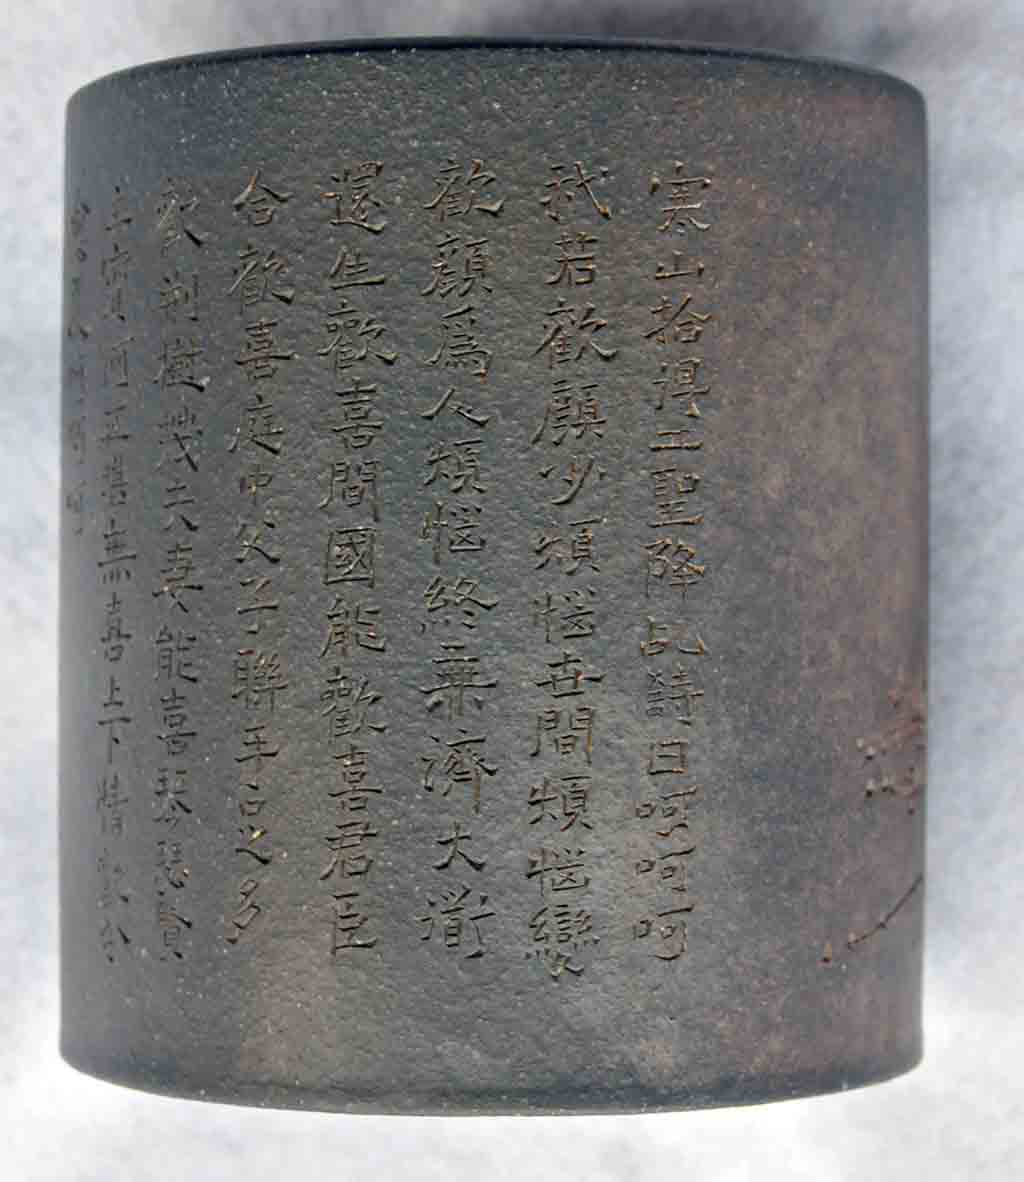 寒山拾得二聖降乩詩曰呵呵呵
我若歡顏少煩惱世間煩惱變
歡顏爲人煩惱終無濟大衜
還生歡喜間國能歡喜君臣
合歡喜庭中父子聯手足多
歡荊樹茂夫妻能喜琴瑟賢
主賓何在堪無喜上下情歡分